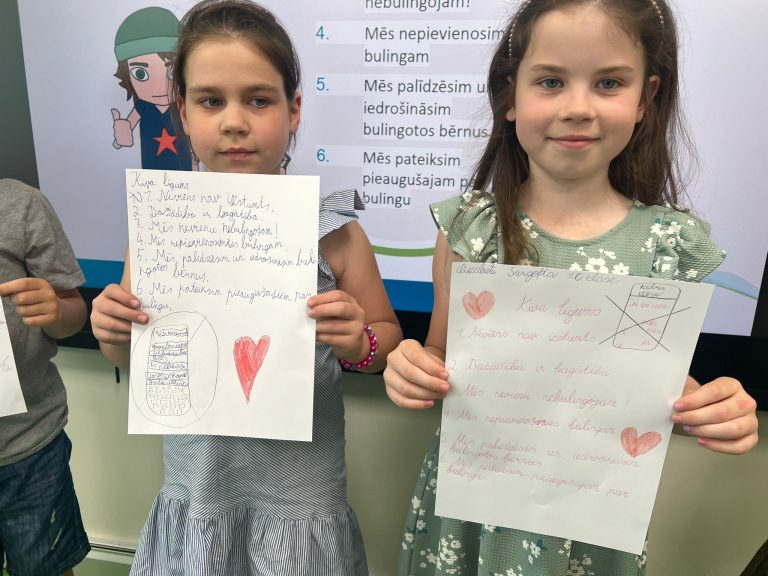 nebulingojam!
4. Mēs nepievienosim
bulingam
5. Mēs palīdzēsim un
iedrošināsim
bulingotos bērnus
6. Mēs pateiksim
pieaugušajam pa
bulingu
Kiva līgums
1. Neviens nav izstumts.
2. Dažādība ir bagātība
3. Mēs nevienu nebulingojam!
4. Mēs nepievienosimies bulingam
5. Mēs palīdzēsim un iedrošināsim bulin
gotos bērnus.
6. Mēs pateiksim pieaugušajam par
bulingu.
klase
Kiva līgums
1. Neviens nav izstumts
2. Dažādība ir bagātība
Mēs nevienu nebulingojam!
4. Mēs nepievienosimies bulingam
5. Mēs palīdzēsim un iedrošināsim
bulingotos bērnus
6. Mēs pateiksim pieaugušajam par
bulingu.